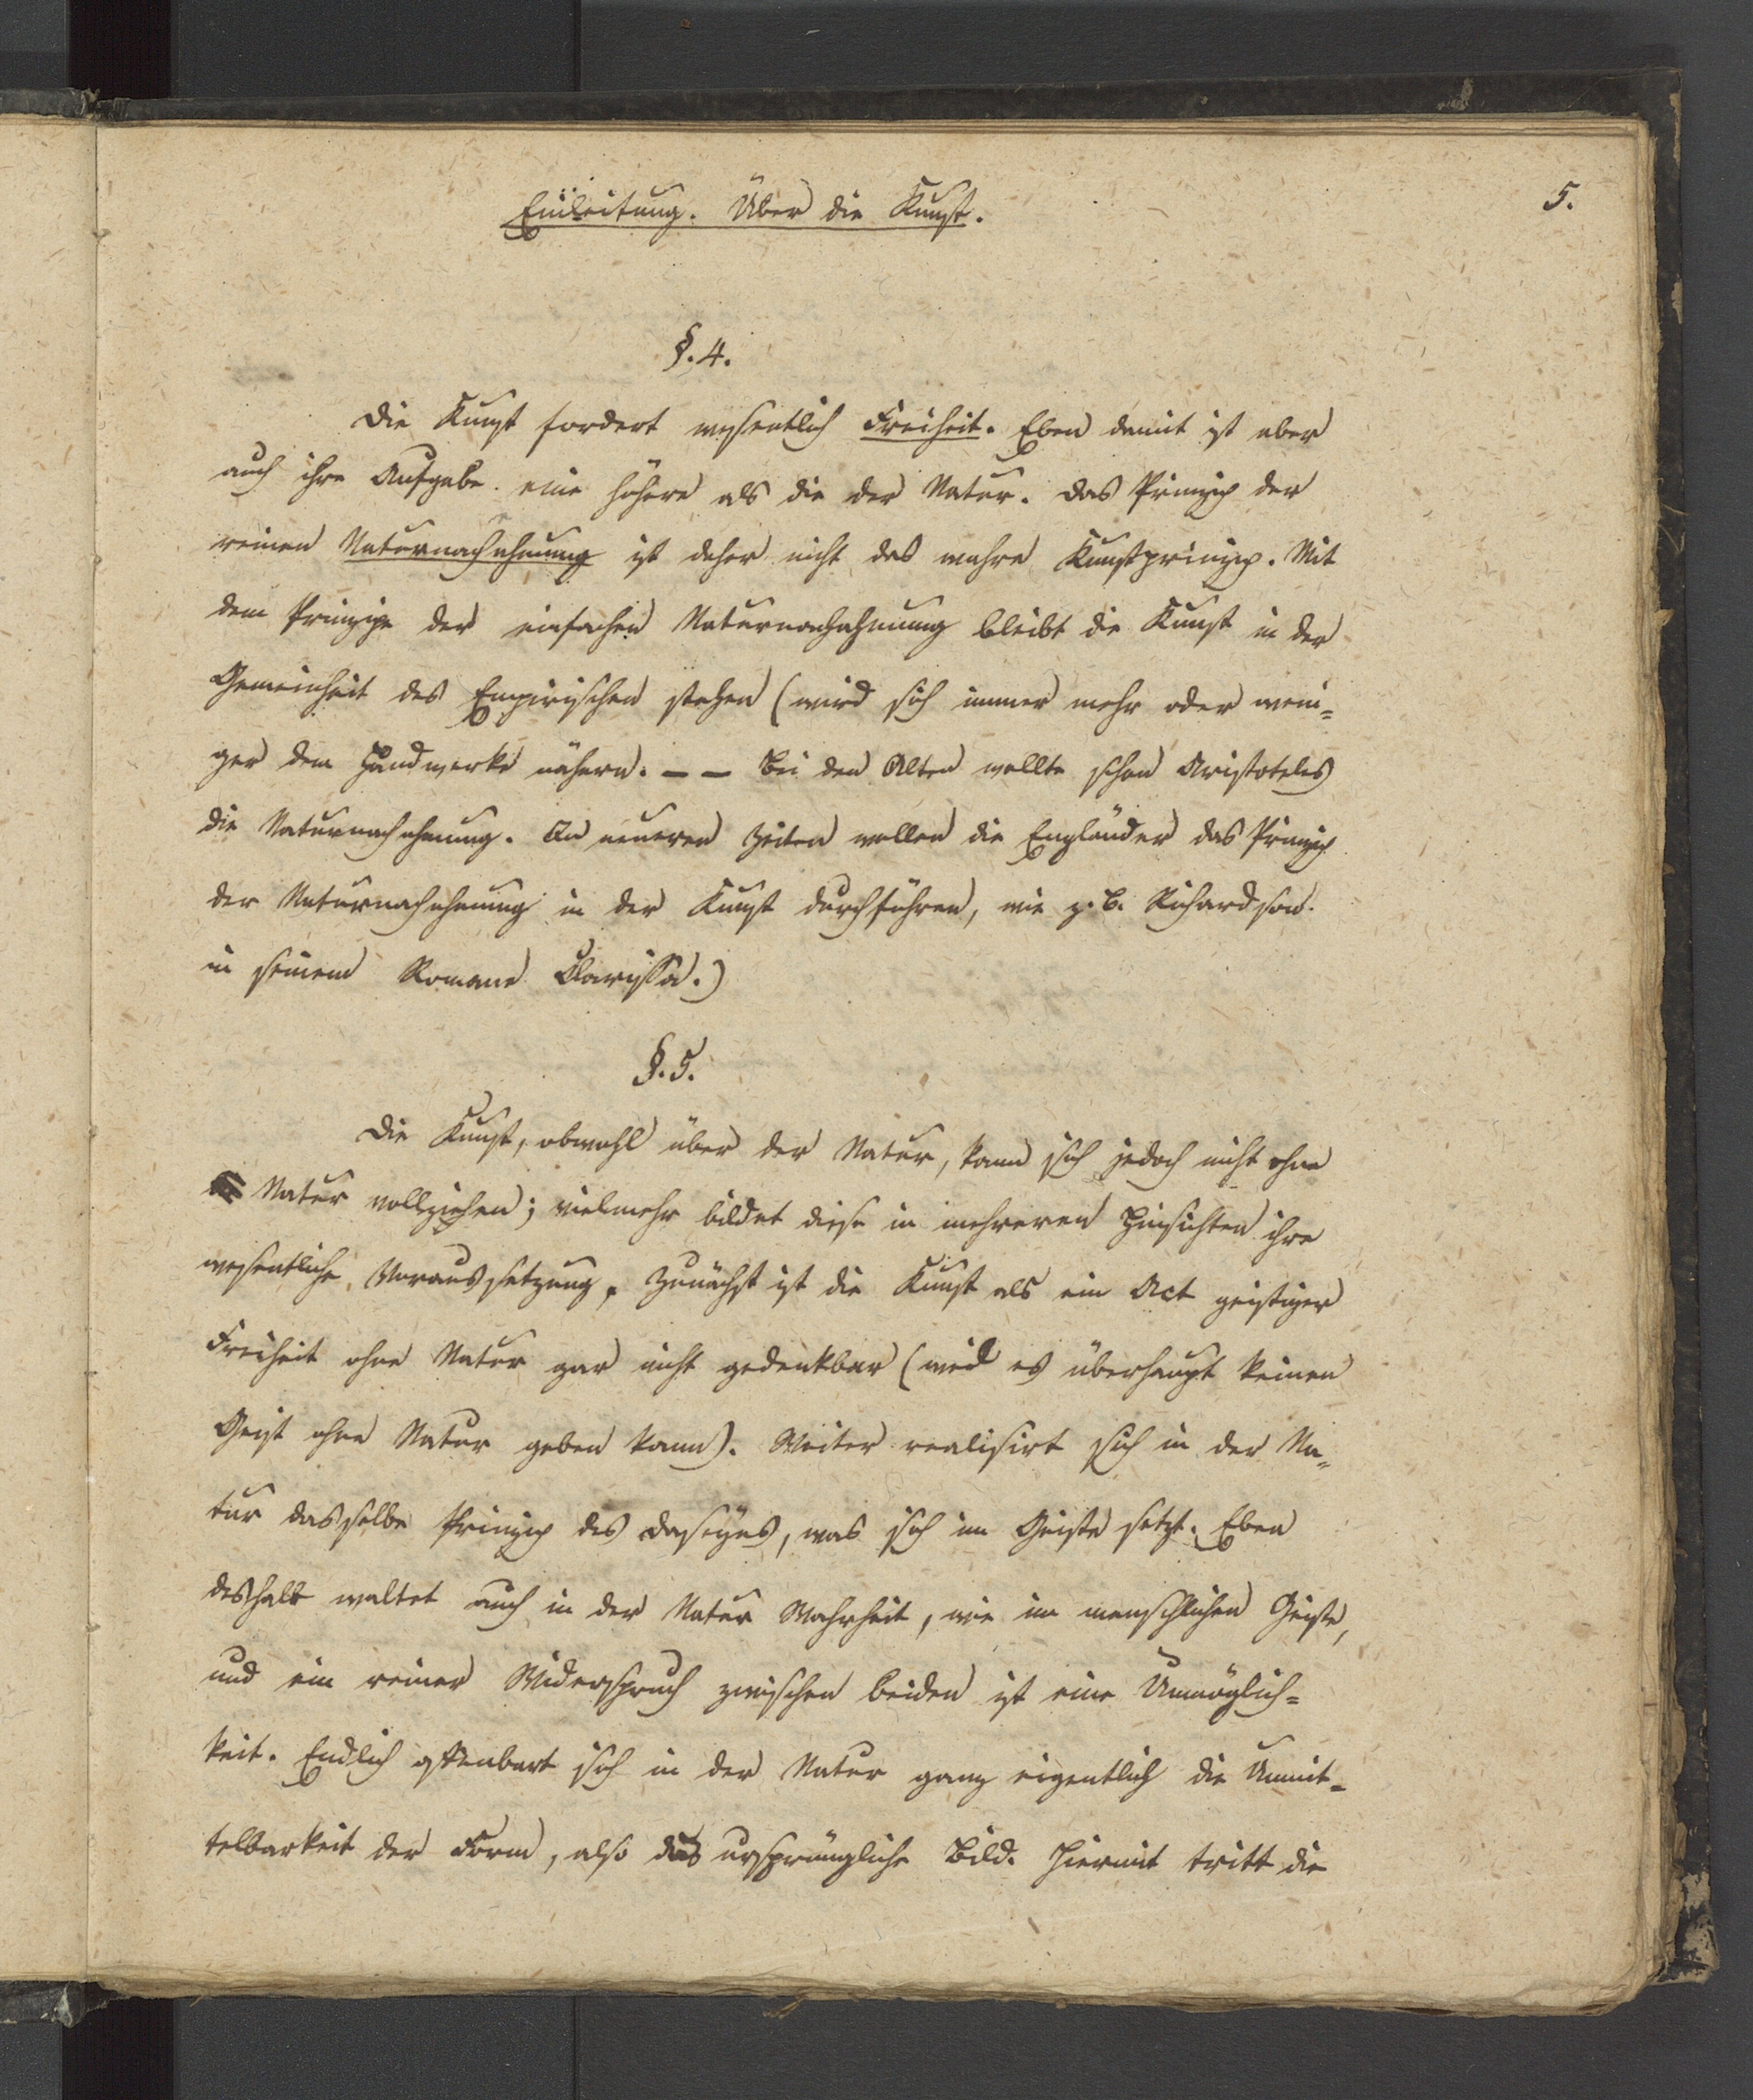 Einleitung. Über die Kunst.
5.
§. 4.
Die Kunst fordert wesentlich Freiheit. Eben damit ist aber
auch ihre Aufgabe eine höhere als die der Natur. Das Prinzip der
reinen Naturnachahmung ist daher nicht das wahre Kunstprinzip. Mit
dem Prinzipe der einfachen Naturnachahmung bleibt die Kunst in der
Gemeinheit des Empirischen stehen (wird sich immer mehr oder weni-
ger dem Handwerke nähern. — — Bei den Alten wollte schon Aristoteles
die Naturnachahmung. In neueren Zeiten wollen die Engländer das Prinzip
der Naturnachahmung in der Kunst durchführen, wie z. B. Richardson
in seinem Romane Clarissa.)
§. 5.
Die Kunst, obwohl über der Natur, kann sich jedoch nicht ohne
Natur vollziehen; vielmehr bildet diese in mehreren Hinsichten ihre
wesentliche Voraussetzung. Zunächst ist die Kunst als ein Act geistiger
Freiheit ohne Natur gar nicht gedenkbar (weil es überhaupt keinen
Geist ohne Natur geben kann). Weiter realisirt sich in der Na-
tur dasselbe Prinzip des Daseyns, was sich im Geiste setzt. Eben
deshalb waltet auch in der Natur Wahrheit, wie im menschlichen Geiste,
und ein reiner Widerspruch zwischen beiden ist eine Unmöglich-
keit. Endlich offenbart sich in der Natur ganz eigentlich die Unmit-
telbarkeit der Form, also das ursprüngliche Bild. Hiermit tritt die